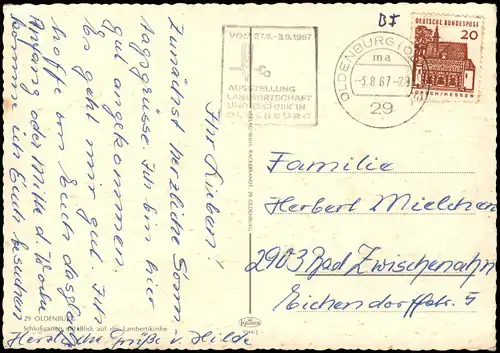 Ihr Lieben!
Zunächst herzliche Sonn-
tagsgrüsse. Ich bin hier
gut angekommen
Es geht mir gut. Ich
hoffe von Euch dasselbe
Anfang oder Mitte d. Woche
komme ich Euch besuchen
Herzliche Grüße v. Hilde
29 OLDENBURG
Schloßgarten mit Blick auf die Lambertikirche
VOM 27.8.-3.9.1967
AUSSTELLUNG
LANDWIRTSCHAFT
UND TECHNIK IN
OLDENBURG
OLDENBURG (OLDB)
ma
-5.8.67-
29
DEUTSCHE BUNDESPOST
20
LORSCH/HESSEN
Familie
Herbert Mielchen
2903 Bad Zwischenahn
Eichendorffstr. 5